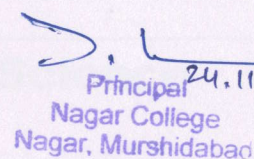 24.11
Principal
Nagar College
Nagar, Murshidabad